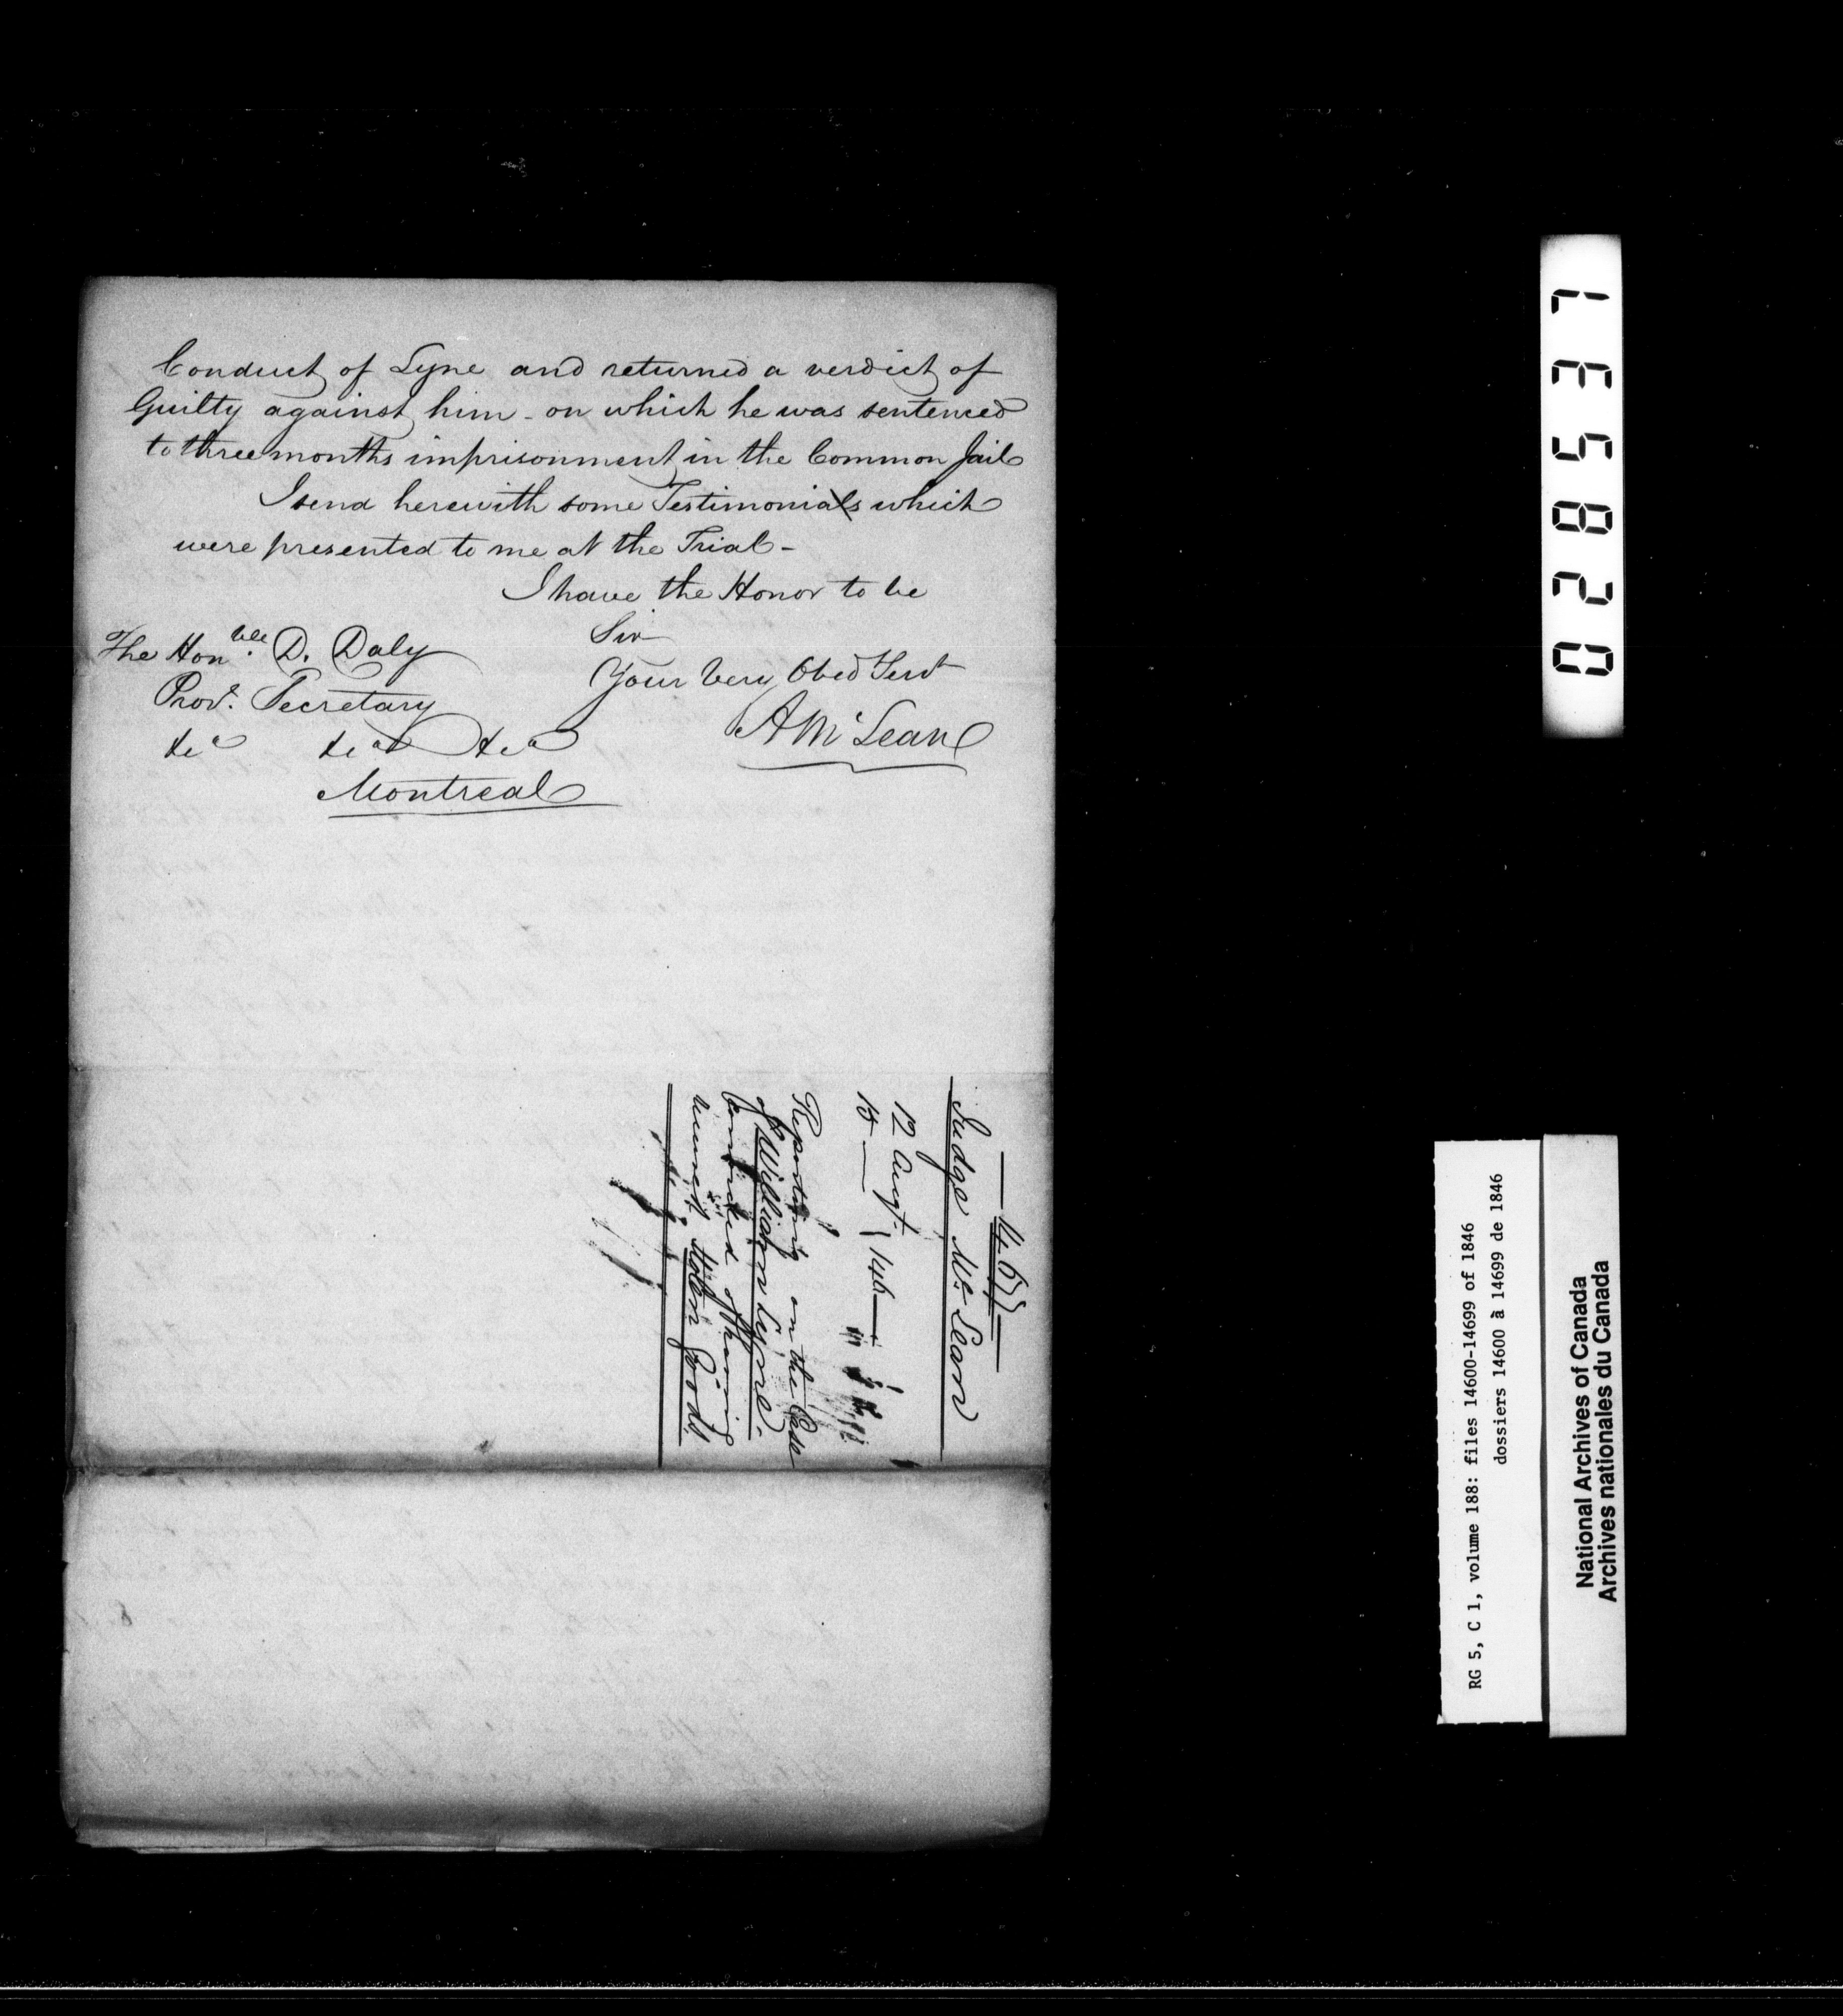 Conduct of Lyne and returned a verdict of
Guilty against him - on which he was sentenced
to three months imprisonment in the Common Jail
I send herewith some Testimonials which
were presented to me at the Trial -
I have the Honor to be
Sir
Your Very Obed Servt
A McLean
The Honble D. Daly
Provl. Secretary
&ca &ca &ca
Montreal
Judge McLean
12 Augt.
15 — } 146
Reporting on the Case
of William Lyne.
convicted of having
received stolen Goods.
028537
RG 5, C 1, volume 188: files 14600-14699 of 1846
dossiers 14600 à 14699 de 1846
National Archives of Canada
Archives nationales du Canada